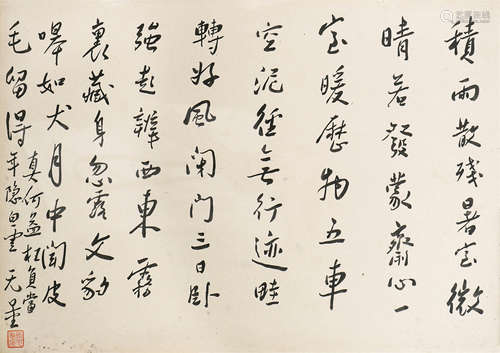 積雨散殘暑室微
晴若發蒙齋心一
室暖歷物五車
空泥徑無行迹畦
轉好風閉門三日臥
強起辨西東霧
裏藏身忽露文豹
嗥如犬月中聞皮
毛留得真何益枉負當
年隱白雲 无量